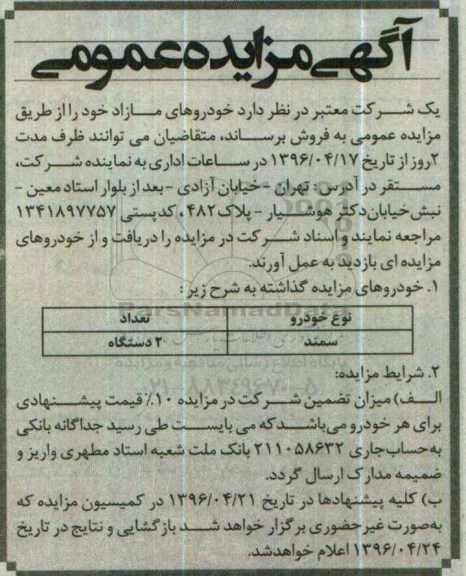 آگهی مزایده عمومی
یک شرکت معتبر در نظر دارد خودروهای مازاد خود را از طریق
مزایده عمومی به فروش برساند، متقاضیان می توانند ظرف مدت
۲روز از تاریخ ۱۳۹۶/۰۴/۱۷ در ساعات اداری به نماینده شرکت،
مستقر در آدرس : تهران - خیابان آزادی - بعد از بلوار استاد معین -
نبش خیابان دکتر هوشیار - پلاک ۴۸۲، کدپستی ۱۳۴۱۸۹۷۷۵۷
مراجعه نمایند و اسناد شرکت در مزایده را دریافت و از خودروهای
مزایده ای بازدید به عمل آورند.
۱. خودروهای مزایده گذاشته به شرح زیر :
نوع خودرو تعداد
سمند ۲ دستگاه
۲. شرایط مزایده:
الف) میزان تضمین شرکت در مزایده ۱۰٪ قیمت پیشنهادی
برای هر خودرو می‌باشد که می بایست طی رسید جداگانه بانکی
به‌حساب‌جاری ۲۱۱۰۵۸۶۳۲ بانک ملت شعبه استاد مطهری واریز و
ضمیمه مدارک ارسال گردد.
ب) کلیه پیشنهادها در تاریخ ۱۳۹۶/۰۴/۲۱ در کمیسیون مزایده که
به‌صورت غیرحضوری برگزار خواهد شد بازگشایی و نتایج در تاریخ
۱۳۹۶/۰۴/۲۴ اعلام خواهدشد.